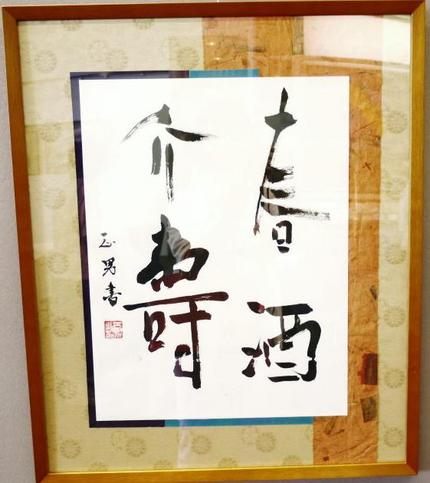 春酒
介壽
正男書